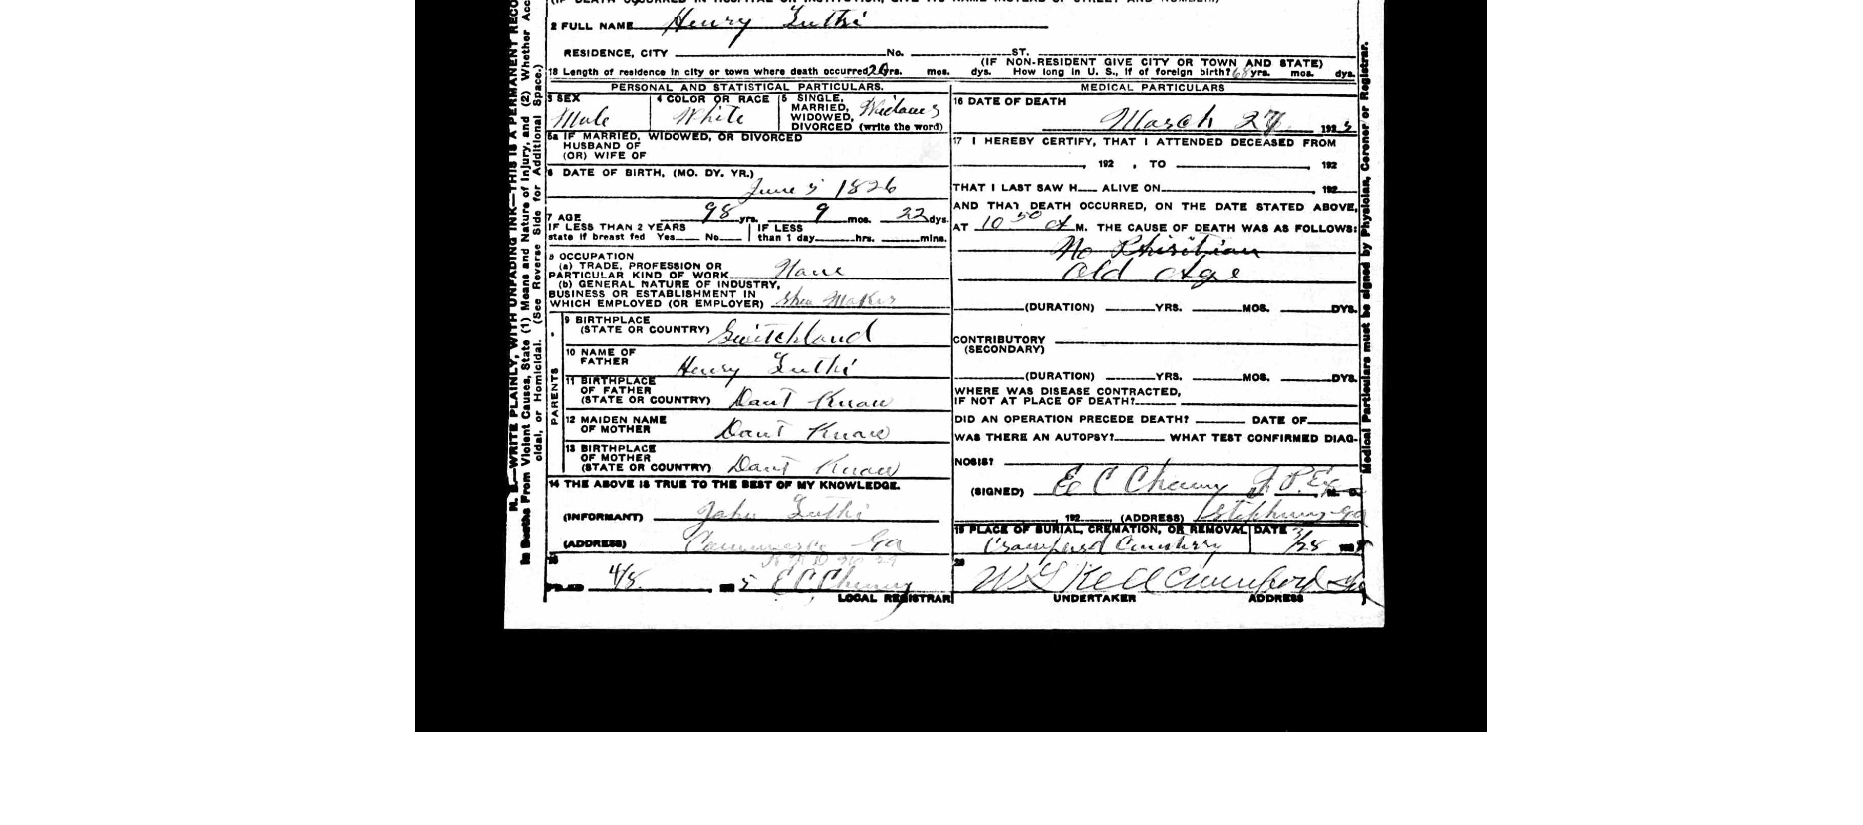 2 FULL NAME Henry Luthi
RESIDENCE, CITY No. ST.
(IF NON-RESIDENT GIVE CITY OR TOWN AND STATE)
18 Length of residence in city or town where death occurred 20 yrs. mos. dys. How long in U. S., if of foreign birth? 68 yrs. mos. dys.
PERSONAL AND STATISTICAL PARTICULARS.
3 SEX Male
4 COLOR OR RACE White
5 SINGLE, MARRIED, WIDOWED, DIVORCED (write the word)
5a IF MARRIED, WIDOWED, OR DIVORCED
HUSBAND OF
(OR) WIFE OF
6 DATE OF BIRTH, (MO. DY. YR.)
June 5 1826
7 AGE 98 yrs. 9 mos. 22 dys.
IF LESS THAN 2 YEARS
state if breast fed Yes No
IF LESS
than 1 day hrs. mins.
8 OCCUPATION
(a) TRADE, PROFESSION OR
PARTICULAR KIND OF WORK None
(b) GENERAL NATURE OF INDUSTRY,
BUSINESS OR ESTABLISHMENT IN
WHICH EMPLOYED (OR EMPLOYER) Shoe Maker
PARENTS
9 BIRTHPLACE
(STATE OR COUNTRY) Switchland
10 NAME OF
FATHER Henry Luthi
11 BIRTHPLACE
OF FATHER
(STATE OR COUNTRY) Dont Know
12 MAIDEN NAME
OF MOTHER Dont Know
13 BIRTHPLACE
OF MOTHER
(STATE OR COUNTRY) Dont Know
14 THE ABOVE IS TRUE TO THE BEST OF MY KNOWLEDGE.
(INFORMANT) John Luthi
(ADDRESS) Commerce Ga
4/8 5 E C Cheney
LOCAL REGISTRAR
MEDICAL PARTICULARS
16 DATE OF DEATH
March 27 192 5
17 I HEREBY CERTIFY, THAT I ATTENDED DECEASED FROM
192 , TO 192
THAT I LAST SAW H ALIVE ON 192
AND THAT DEATH OCCURRED, ON THE DATE STATED ABOVE,
AT 10 50 a M. THE CAUSE OF DEATH WAS AS FOLLOWS:
No Phisitian
Old Age
(DURATION) YRS. MOS. DYS.
CONTRIBUTORY
(SECONDARY)
(DURATION) YRS. MOS. DYS.
WHERE WAS DISEASE CONTRACTED,
IF NOT AT PLACE OF DEATH?
DID AN OPERATION PRECEDE DEATH? DATE OF
WAS THERE AN AUTOPSY? WHAT TEST CONFIRMED DIAG-
NOSIS?
(SIGNED) E C Cheney J. P. M. D.
192 (ADDRESS) Stephens Ga
19 PLACE OF BURIAL, CREMATION, OR REMOVAL DATE
Crawford Cemetery 3/28
20 Crawford Ga
UNDERTAKER ADDRESS
N. B.—WRITE PLAINLY, WITH UNFADING INK—THIS IS A PERMANENT RECO
In Deaths From Violent Causes, State (1) Means and Nature of Injury, and (2) Whether Acc
cidal, or Homicidal. (See Reverse Side for Additional Space.)
Medical Particulars must be signed by Physician, Coroner or Registrar.